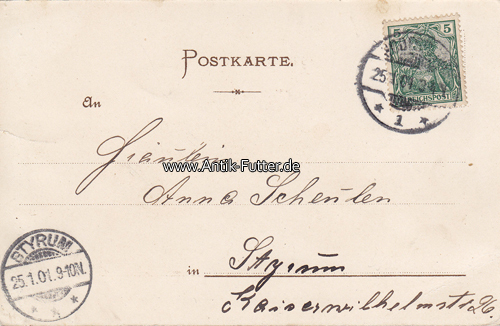 POSTKARTE.
5 5
REICHSPOST
25.1.01
1
An
Fräulein
www.Antik-Futter.de
Anna Scheulen
STYRUM
25.1.01.9-10N.
in Styrum
Kaiserwilhelmstr